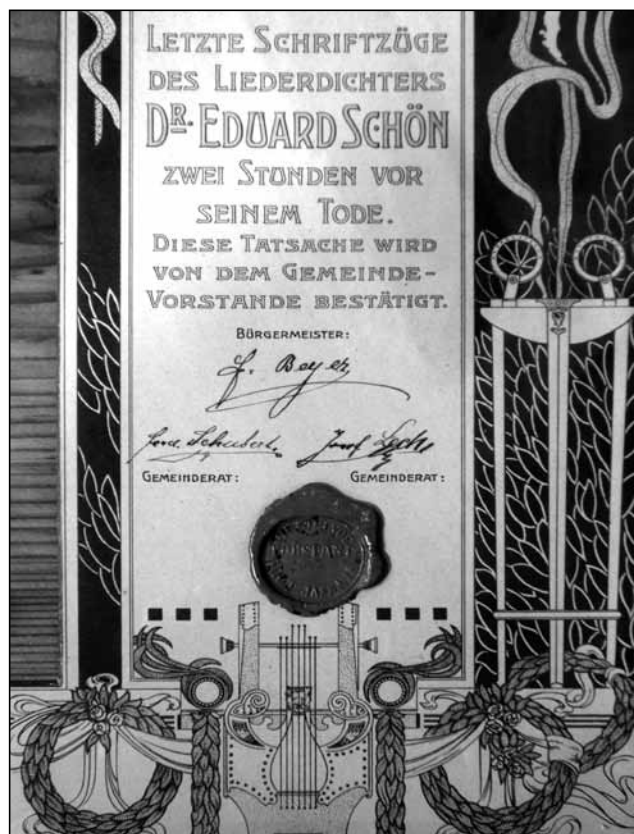 LETZTE SCHRIFTZÜGE
DES LIEDERDICHTERS
DR. EDUARD SCHÖN
ZWEI STUNDEN VOR
SEINEM TODE.
DIESE TATSACHE WIRD
VON DEM GEMEINDE-
VORSTANDE BESTÄTIGT.
BÜRGERMEISTER:
F. Beyer
Schubert. Josef
GEMEINDERAT: GEMEINDERAT: